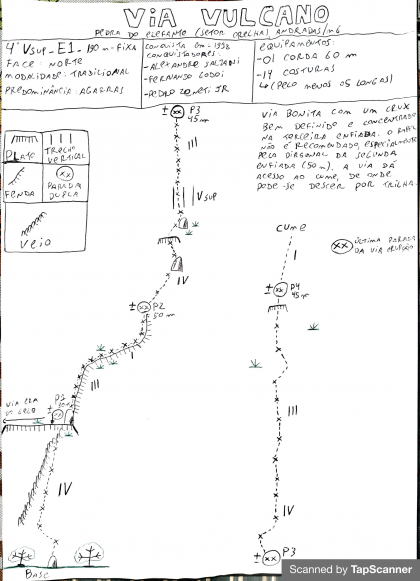 VIA VULCANO
PEDRA DO ELEFANTE (SETOR ORELHA), ANDRADAS/MG
4º Vsup - E1 - 190 m - FIXA
FACE: NORTE
MODALIDADE: TRADICIONAL
PREDOMINÂNCIA: AGARRAS
CONQUISTA EM - 1998
CONQUISTADORES:
- ALEXANDRE
- FERNANDO
- PEDRO ZENETI JR
EQUIPAMENTOS:
- 01 CORDA 60 m
- 14 COSTURAS
↳ (PELO MENOS 05 LONGAS)
VIA BONITA COM UM CRUX
BEM DEFINIDO E CONCENTRADO
NA TERCEIRA ENFIADA. O RAPEL
NÃO É RECOMENDADO, ESPECIALMENTE
PELA DIAGONAL DA SEGUNDA
ENFIADA (50 m). A VIA DÁ
ACESSO AO CUME, DE ONDE
PODE-SE DESCER POR TRILHA.
PLATÔ
TRECHO
VERTICAL
FENDA
PARADA
DUPLA
VEIO
± XX P3
45 m
III
Vsup
IV
± XX P2
50 m
I
III
P1
VIA
XX
IV
BASE
CUME
I
XX ÚLTIMA PARADA
DA VIA
± XX P4
45 m
III
IV
± XX P3
Scanned by TapScanner